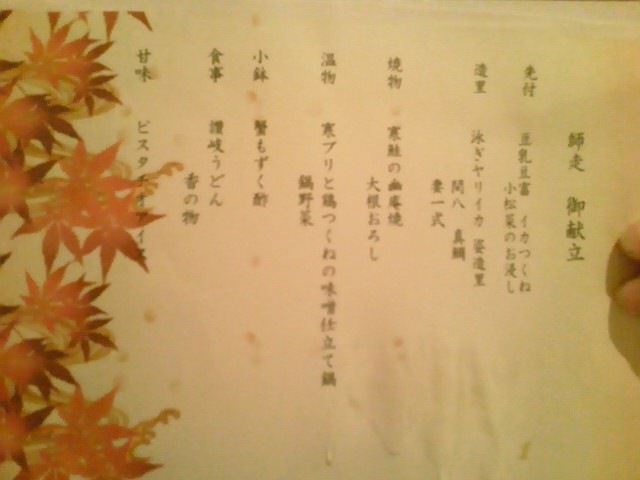 師走 御献立
先付 豆乳豆富 イカつくね
小松菜のお浸し
造里 泳ぎヤリイカ 姿造里
間八 真鯛
妻一式
焼物 寒鮭の幽庵焼
大根おろし
温物 寒ブリと鶏つくねの味噌仕立て鍋
鍋野菜
小鉢 蟹もずく酢
食事 讃岐うどん
香の物
甘味 ピスタチオアイス